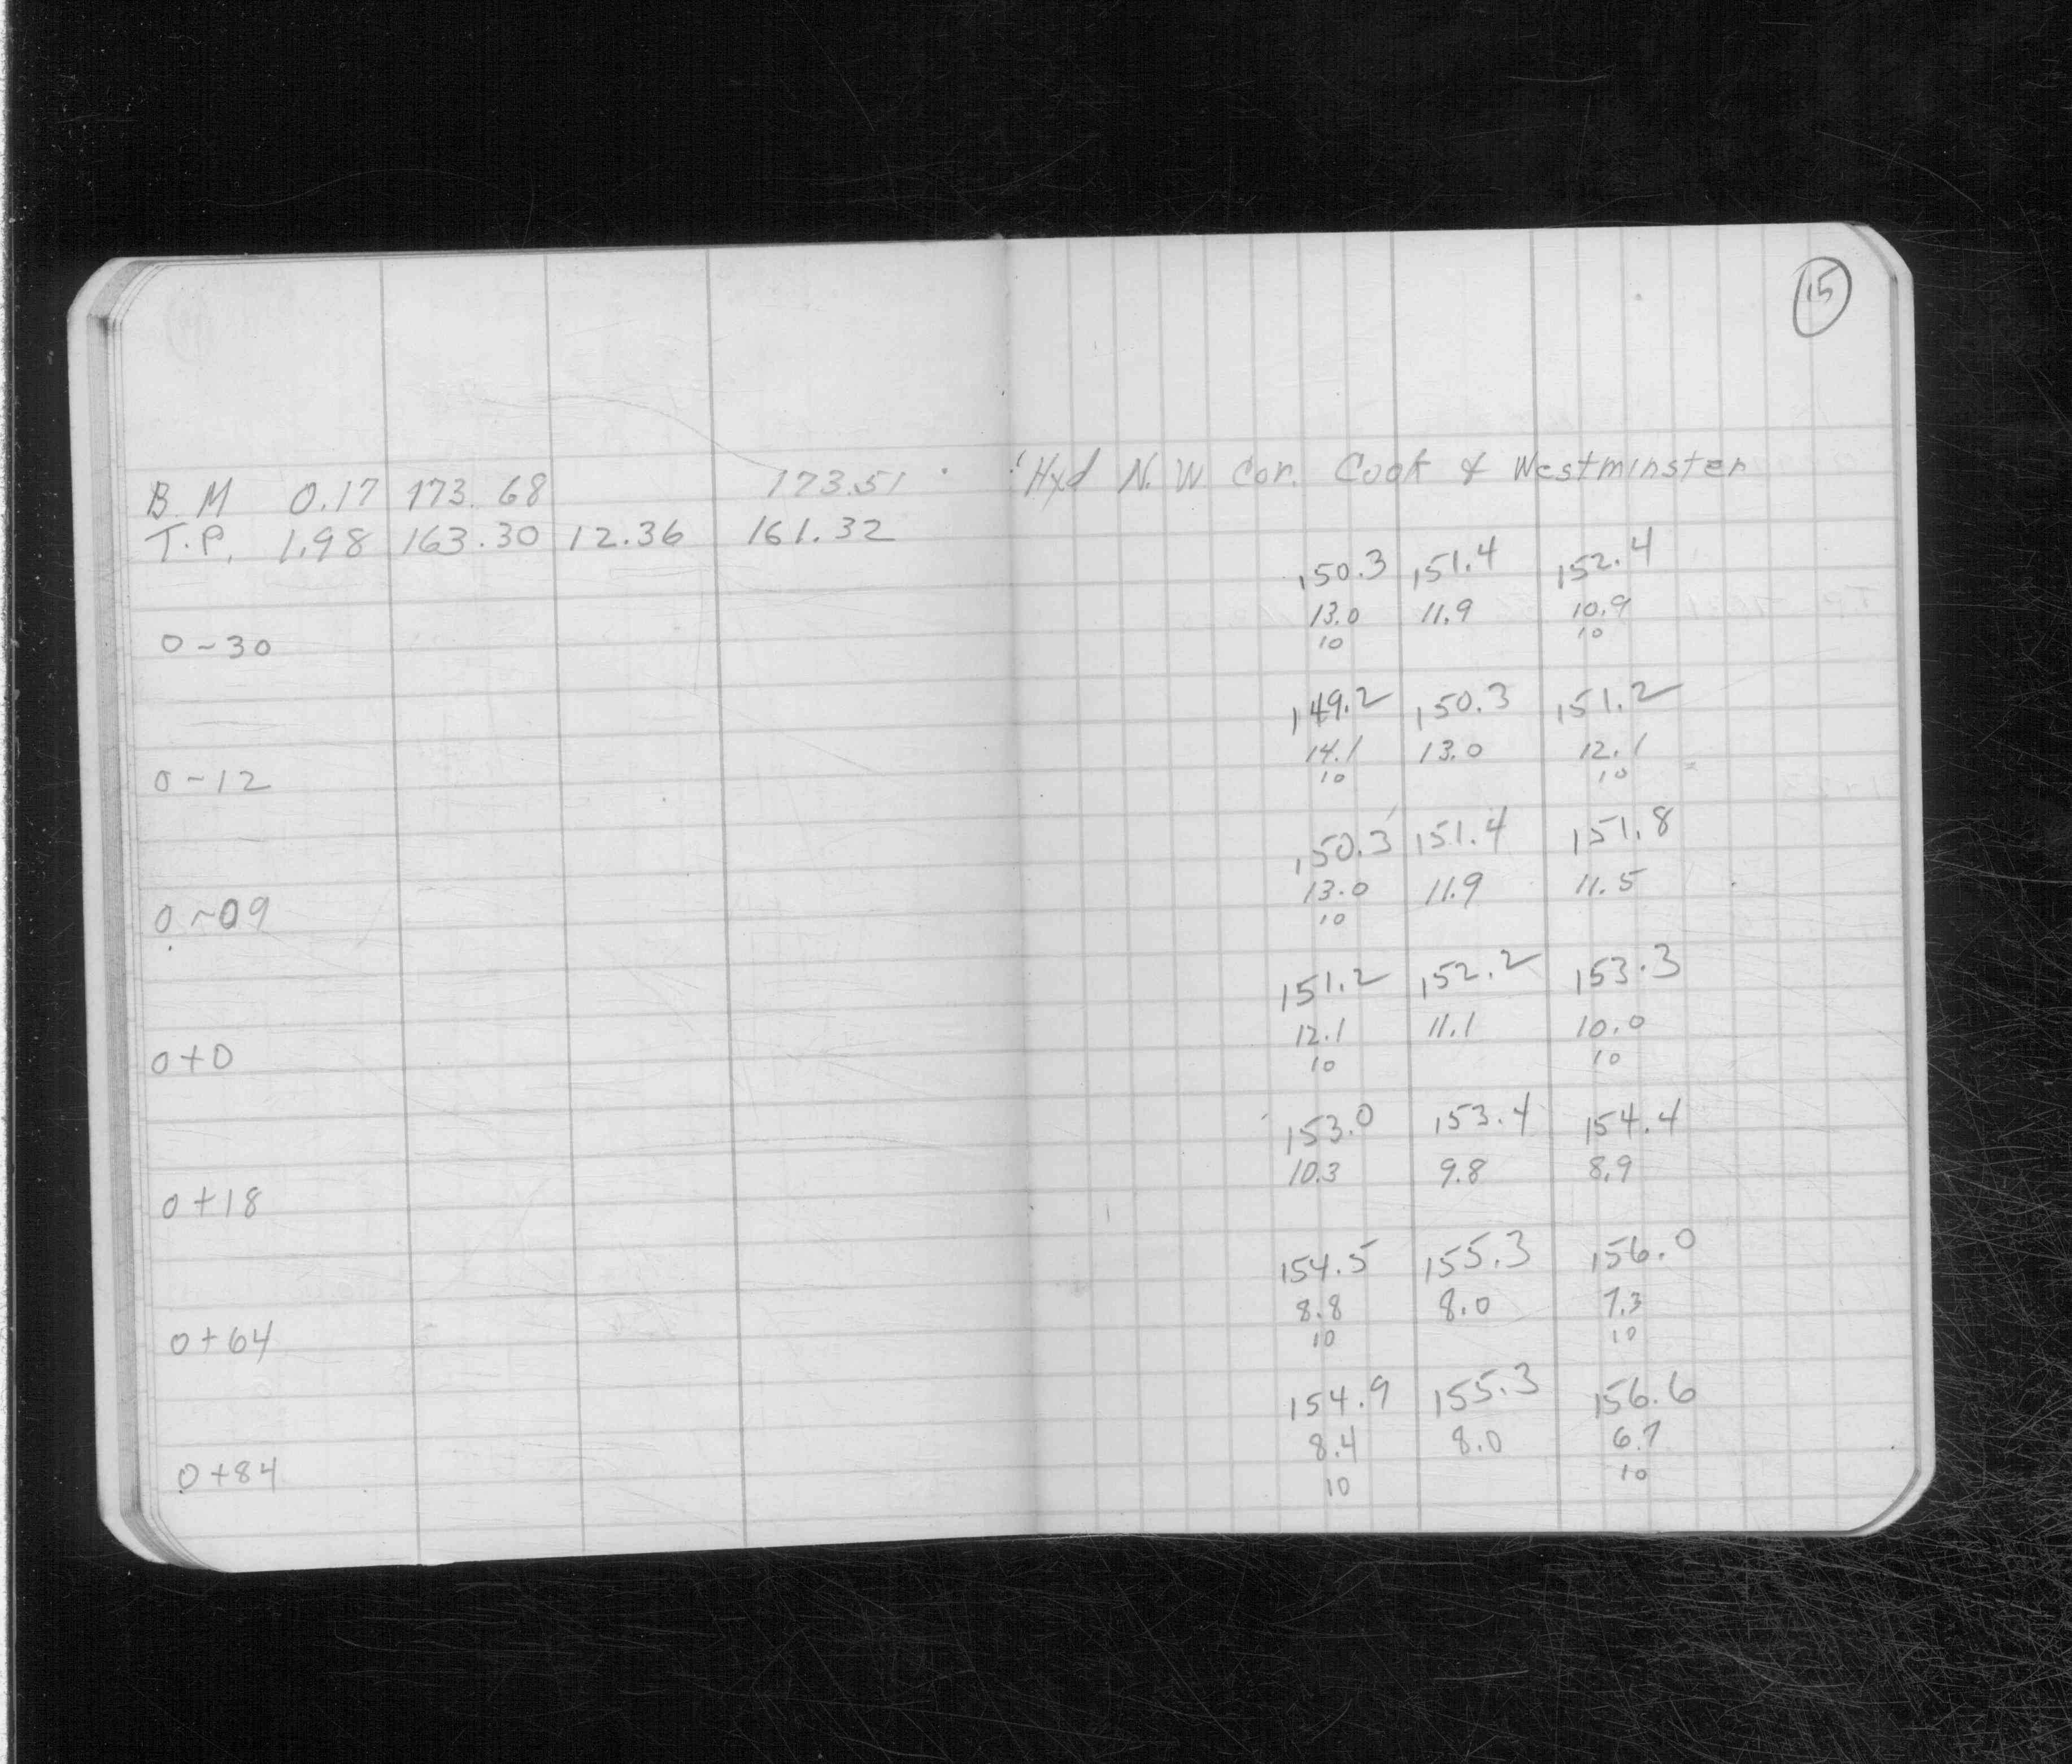 15
B.M 0.17 173.68 173.51 Hyd N.W Cor. Cook & Westminster
T.P. 1.98 163.30 12.36 161.32
150.3 151.4 152.4
13.0 11.9 10.9
0-30 10 10
149.2 150.3 151.2
14.1 13.0 12.1
0-12 10 10
150.3 151.4 151.8
13.0 11.9 11.5
0-09 10
151.2 152.2 153.3
12.1 11.1 10.0
0+0 10 10
153.0 153.4 154.4
10.3 9.8 8.9
0+18
154.5 155.3 156.0
8.8 8.0 7.3
0+64 10 10
154.9 155.3 156.6
8.4 8.0 6.7
0+84 10 10